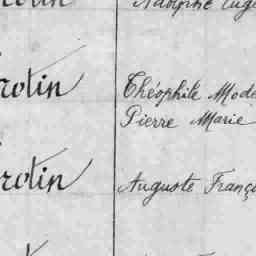 rotin Théophile Mode
Pierre Marie
rotin Auguste Franço